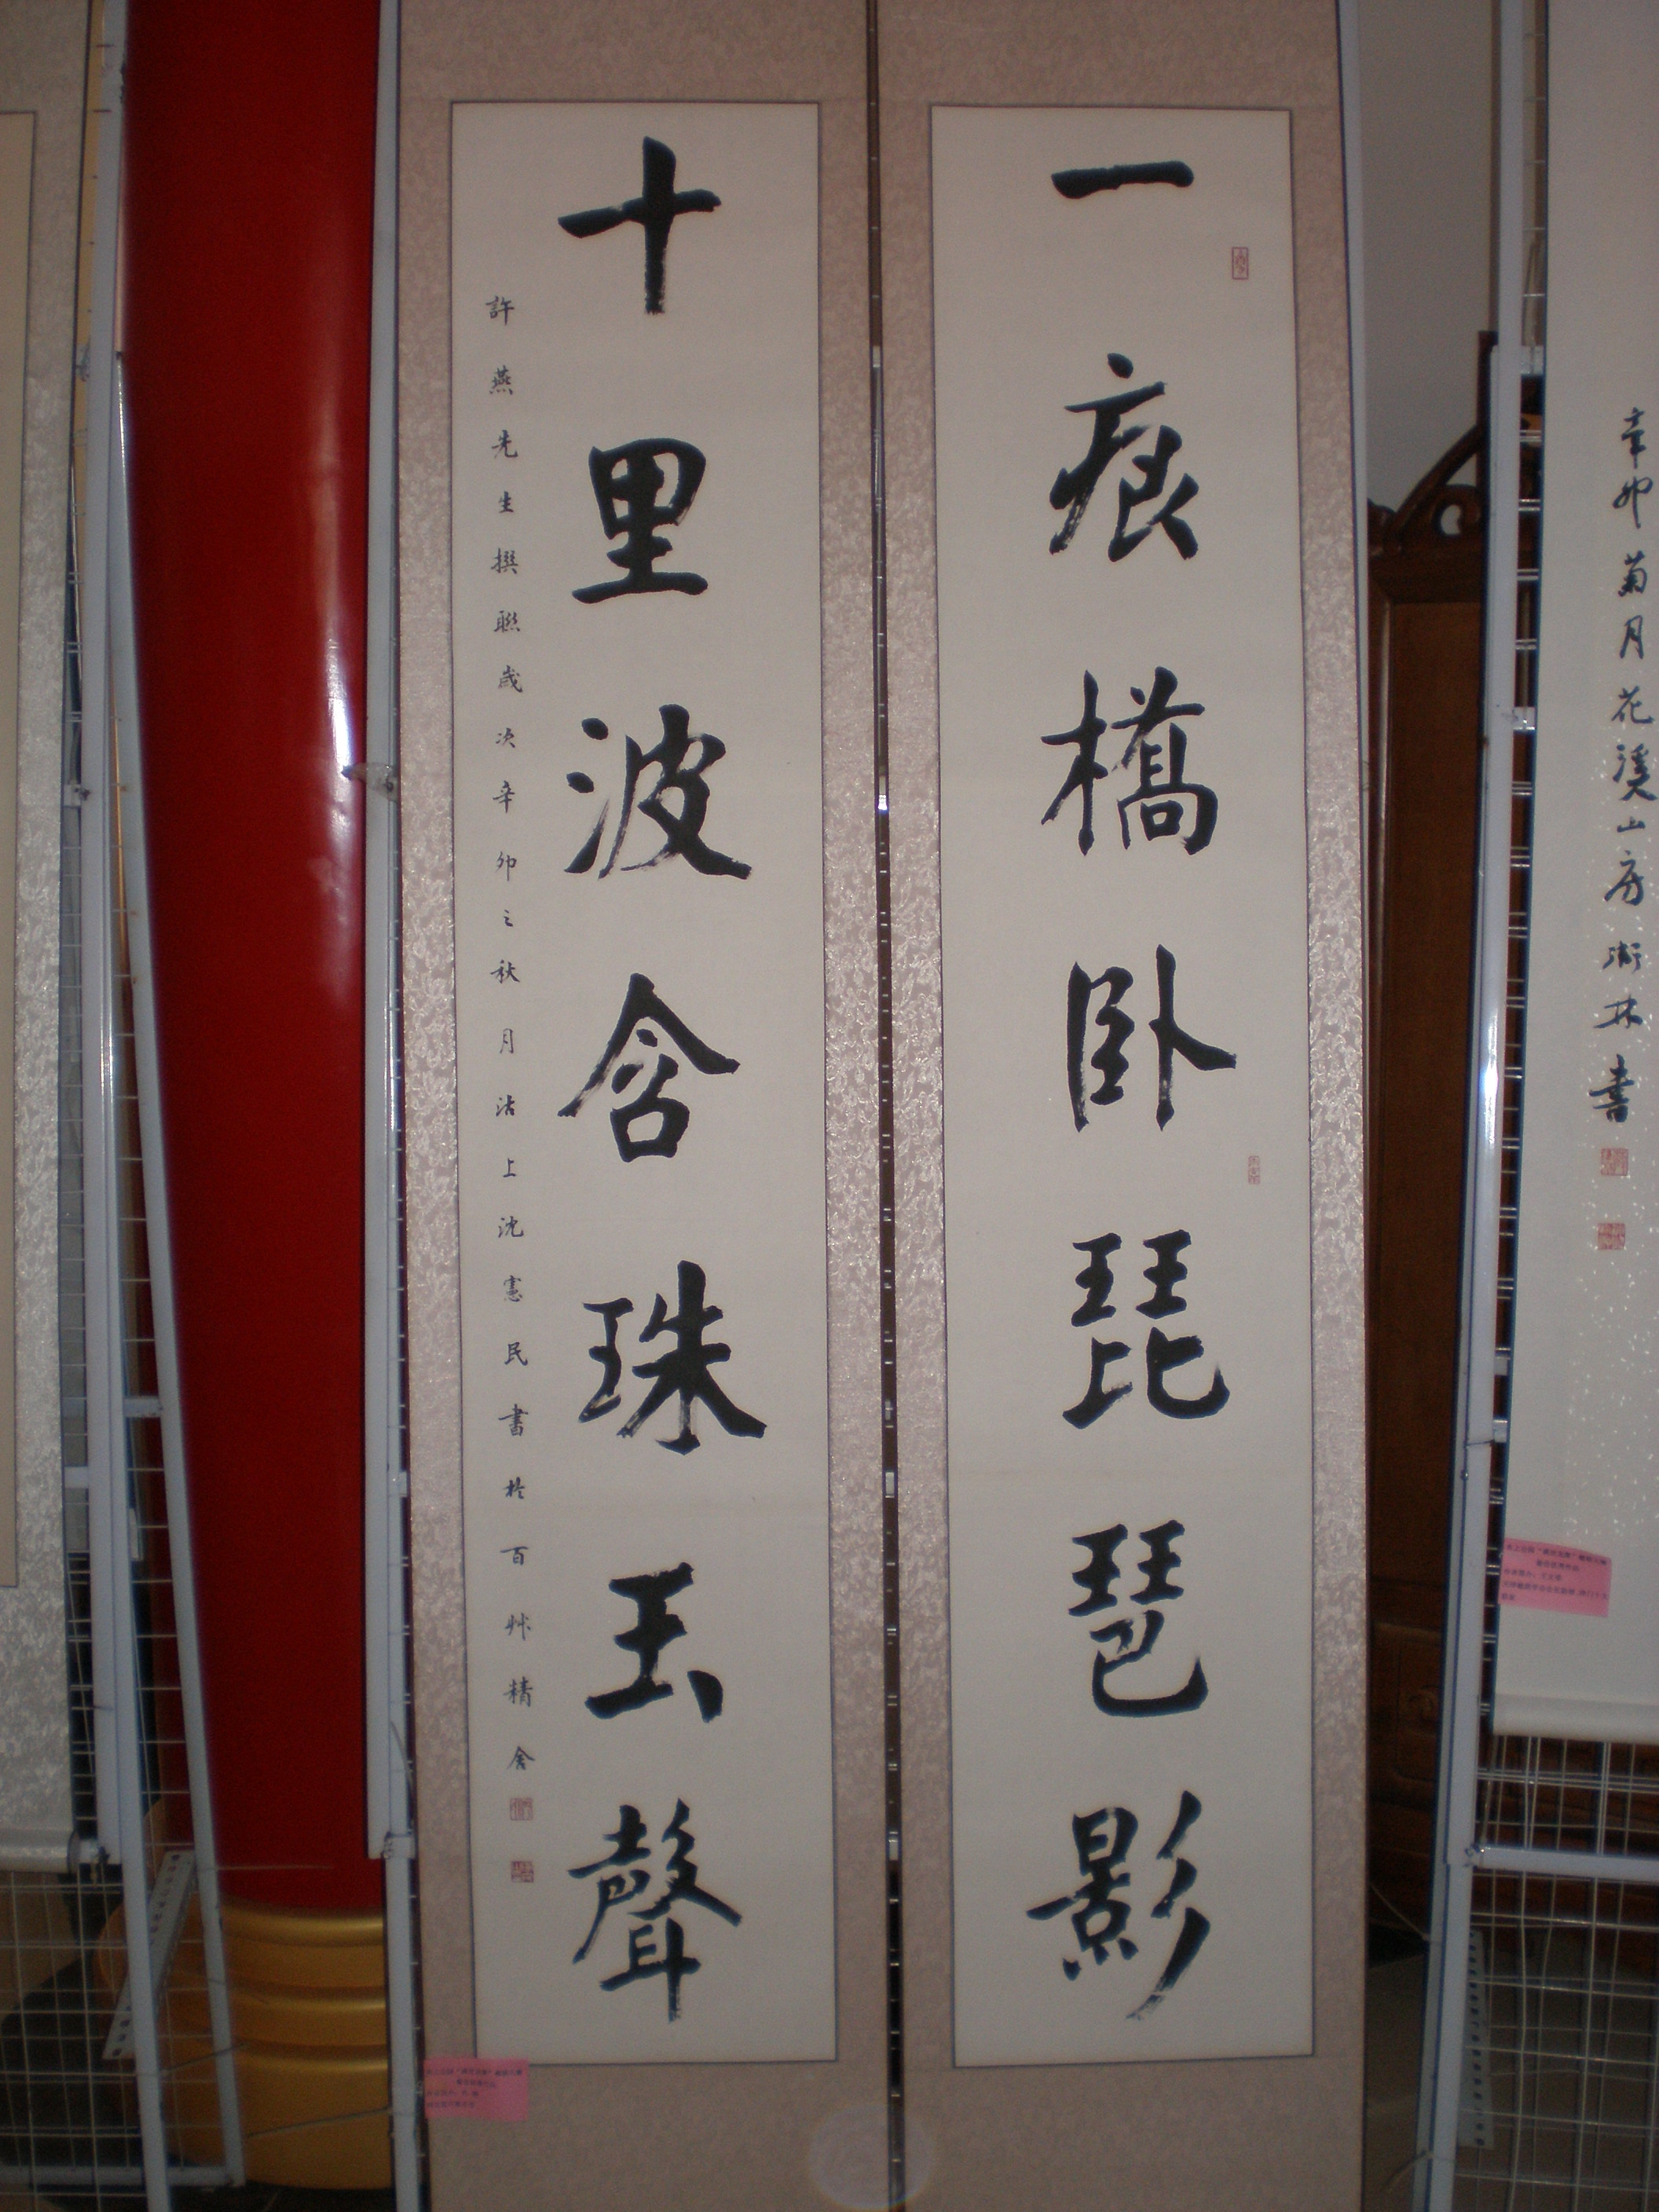 一痕橋卧琵琶影
十里波含珠玉聲
許燕先生撰聯歲次辛卯之秋月沽上沈憲民書於百艸精舍
辛卯菊月花溪山房衛林書